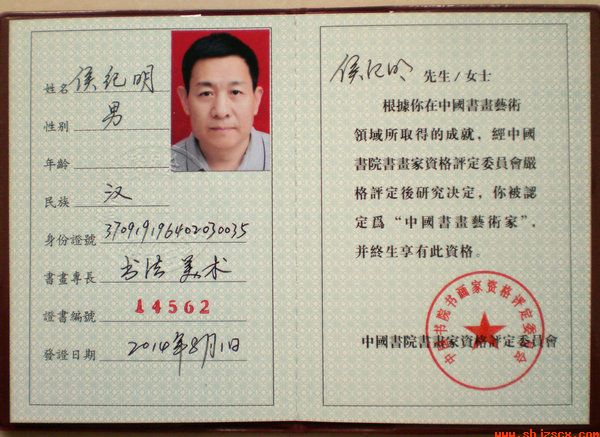 姓名 侯纪明
性别 男
年龄
民族 汉
身份證號 370919196402030035
書畫專長 书法 美术
證書編號 14562
發證日期 2014年8月1日
侯纪明 先生/女士
根據你在中國書畫藝術
領域所取得的成就，經中國
書院書畫家資格評定委員會嚴
格評定後研究決定，你被認
定爲“中國書畫藝術家”，
并終生享有此資格。
中國書院書畫家資格評定委員會
中国书院书画家资格评定委员会
www.shjzscx.com